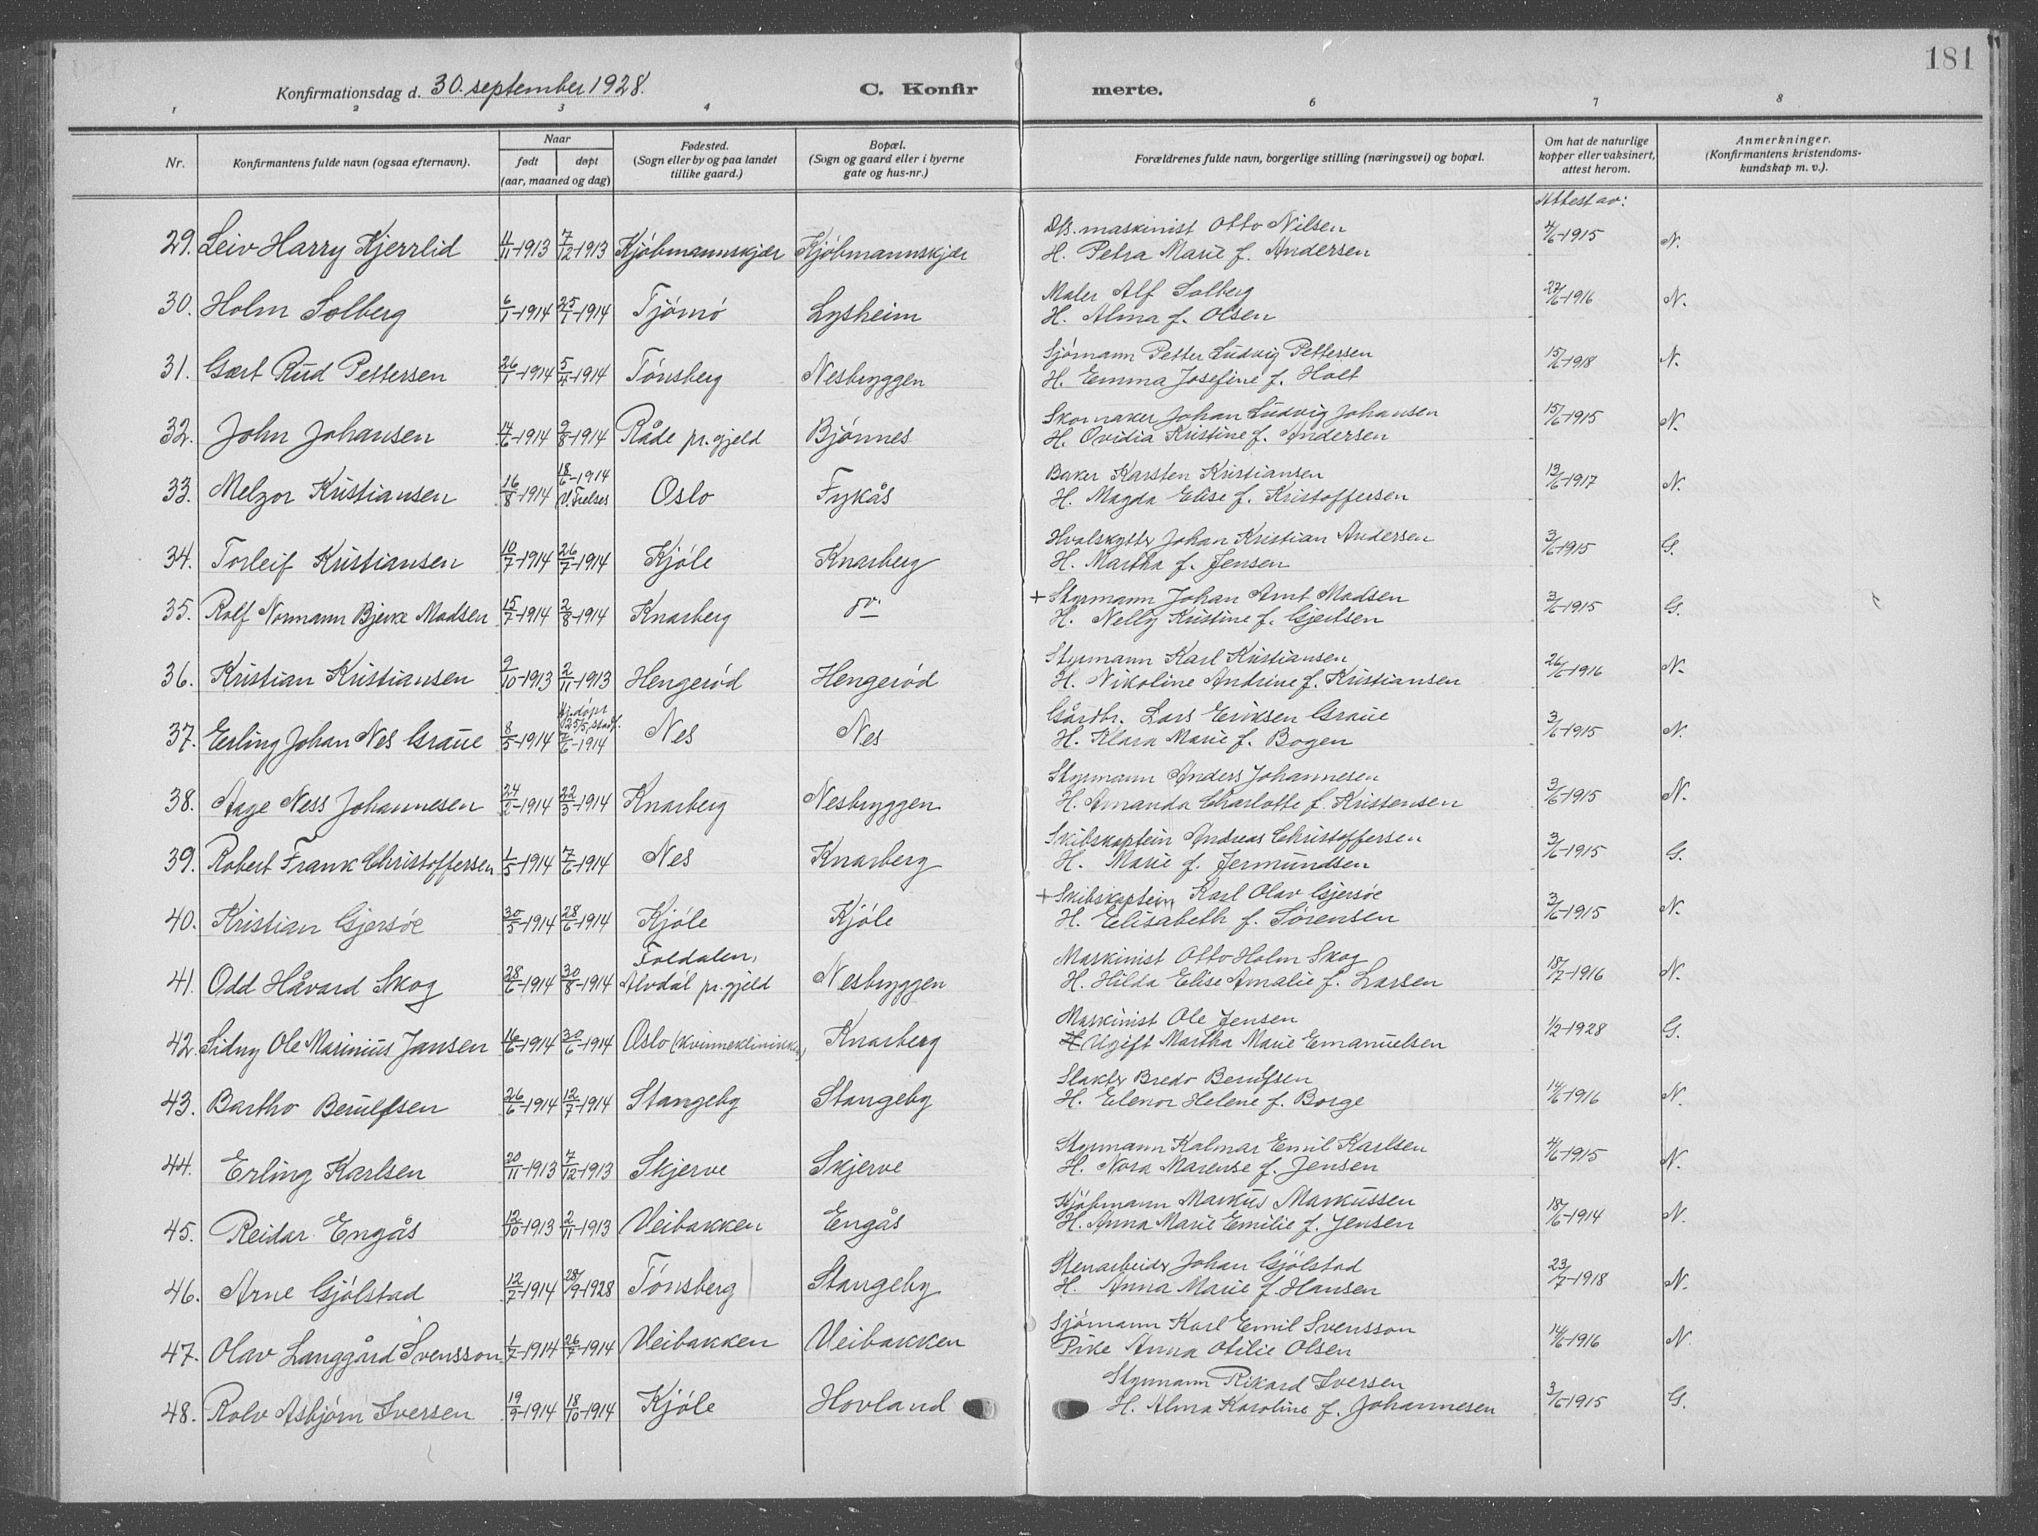 181
Konfirmationsdag d. 30. september 1928. C. Konfirmerte.
1 2 3 4 6 7 8
Nr. Konfirmantens fulde navn (ogsaa efternavn). Naar født døpt (aar, maaned og dag) Fødested. (Sogn eller by og paa landet tillike gaard.) Bopæl. (Sogn og gaard eller i byerne gate og hus-nr.) Forældrenes fulde navn, borgerlige stilling (næringsvei) og bopæl. Om hat de naturlige kopper eller vaksinert, attest herom. Anmerkninger. (Konfirmantens kristendomskundskap m. v.).
Attest av:
29. Leiv Harry Kjerrlid 4/11-1913 7/12-1913 Kjøbmannskjær Kjøbmannskjær Ds. maskinist Otto Nilsen 4/6-1915 N.
H. Petra Marie f. Andersen
30. Holm Solberg 6/1-1914 25/1-1914 Tjømø Lysheim Maler Alf Solberg 27/6-1916 N.
H. Alma f. Olsen
31. Gært Rud Pettersen 26/1-1914 5/4-1914 Tønsberg Nesbryggen Sjømann Petter Ludvig Pettersen 15/6-1918 N.
H. Emma Josefine f. Holt
32. John Johansen 14/6-1914 9/8-1914 Råde pr.gjeld Bjønnes Skomaker Johan Ludvig Johansen 15/6-1915 N.
H. Ovidia Kristine f. Andersen
33. Melzor Kristiansen 16/8-1914 18/6-1914 Oslo Fykås Baker Karsten Kristiansen 13/6-1917 N.
H. Magda Elise f. Kristoffersen
34. Torleif Kristiansen 10/7-1914 26/7-1914 Kjøle Knarberg Hvalskytter Johan Kristian Andersen 3/6-1915 G.
H. Martha f. Jensen
35. Rolf Normann Bjerke Madsen 15/7-1914 2/8-1914 Knarberg do. + Styrmann Johan Arnt Madsen 3/6-1915 G.
H. Nelly Kristine f. Gjertsen
36. Kristian Kristiansen 9/10-1913 2/11-1913 Hengerød Hengerød Styrmann Karl Kristiansen 26/6-1916 N.
H. Nikoline Andrine f. Kristiansen
37. Erling Johan Nes Graue 8/5-1914 Hj.døpt 25/5, stadf. 7/6-1914 Nes Nes Gårdbr. Lars Eriksen Graue 3/6-1915 N.
H. Klara Marie f. Bogen
38. Aage Ness Johannesen 24/2-1914 22/3-1914 Knarberg Nesbryggen Styrmann Anders Johannesen 3/6-1915 N.
H. Amanda Charlotte f. Kristensen
39. Robert Frank Christoffersen 1/5-1914 7/6-1914 Nes Knarberg Skibskaptein Andreas Christoffersen 3/6-1915 G.
H. Marie f. Jermundsen
40. Kristian Gjersøe 30/5-1914 28/6-1914 Kjøle Kjøle + Skibskaptein Karl Olav Gjersøe 3/6-1915 N.
H. Elisabeth f. Sørensen
41. Odd Håvard Skog 28/6-1914 30/8-1914 Foldalen, Alvdal pr.gjeld Nesbryggen Maskinist Otto Holm Skog 18/7-1916 N.
H. Hilda Elise Amalie f. Larsen
42. Sidny Ole Marinius Jansen 16/6-1914 30/6-1914 Oslo (Kvinneklinikken) Knarberg Maskinist Ole Jensen 1/2-1928 G.
H Ugift Martha Marie Emanuelsen
43. Bartho Berulfsen 26/6-1914 12/7-1914 Stangeby Stangeby Slakter Bredo Berulfsen 14/6-1916 N.
H. Elenor Helene f. Borge
44. Erling Karlsen 20/11-1913 7/12-1913 Skjerve Skjerve Styrmann Kalmar Emil Karlsen 4/6-1915 N.
H. Nora Marense f. Jensen
45. Reidar Engås 12/10-1913 2/11-1913 Veibakken Engås Kjøbmann Markus Markussen 18/6-1914 N.
H. Anna Marie Emilie f. Jensen
46. Arne Gjølstad 12/7-1914 28/9-1928 Tønsberg Stangeby Stenarbeider Johan Gjølstad 23/7-1918 N.
H. Anna Marie f. Hansen
47. Olav Langgård Svensson 1/7-1914 26/7-1914 Veibakken Veibakken Sjømann Karl Emil Svensson 14/6-1916 N.
Pike Anna Otilie Olsen
48. Rolv Asbjørn Iversen 19/9-1914 18/10-1914 Kjøle Hovland Styrmann Rikard Iversen 3/6-1915 G.
H. Alma Karoline f. Johannesen